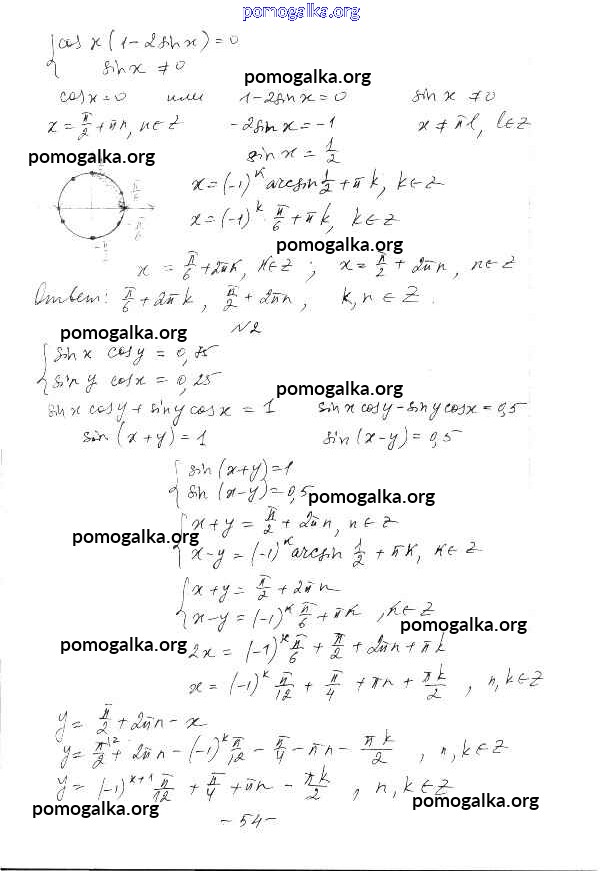 pomogalka.org
{ cos x (1 - 2 sin x) = 0
sin x ≠ 0
pomogalka.org
cos x = 0 или 1 - 2 sin x = 0 sin x ≠ 0
x = π/2 + πn, n ∈ Z - 2 sin x = -1 x ≠ πl, l ∈ Z
pomogalka.org sin x = 1/2
x = (-1)^k arcsin 1/2 + πk, k ∈ Z
π/6
x = (-1)^k π/6 + πk, k ∈ Z
-π/6
pomogalka.org
x = π/6 + 2πk, k ∈ Z; x = π/2 + 2πn, n ∈ Z
Ответ: π/6 + 2πk, π/2 + 2πn, k, n ∈ Z.
pomogalka.org N2
{ sin x cos y = 0,75
sin y cos x = 0,25 pomogalka.org
sin x cos y + sin y cos x = 1 sin x cos y - sin y cos x = 0,5
sin (x + y) = 1 sin (x - y) = 0,5
{ sin (x + y) = 1
sin (x - y) = 0,5 pomogalka.org
{ x + y = π/2 + 2πn, n ∈ Z
pomogalka.org
x - y = (-1)^k arcsin 1/2 + πk, k ∈ Z
{ x + y = π/2 + 2πn
x - y = (-1)^k π/6 + πk, k ∈ Z
pomogalka.org
pomogalka.org 2x = (-1)^k π/6 + π/2 + 2πn + πk
x = (-1)^k π/12 + π/4 + πn + πk/2, n, k ∈ Z
pomogalka.org
y = π/2 + 2πn - x
y = π/2 + 2πn - (-1)^k π/12 - π/4 - πn - πk/2, n, k ∈ Z
y = (-1)^{k+1} π/12 + π/4 + πn - πk/2, n, k ∈ Z
pomogalka.org pomogalka.org
- 54 -